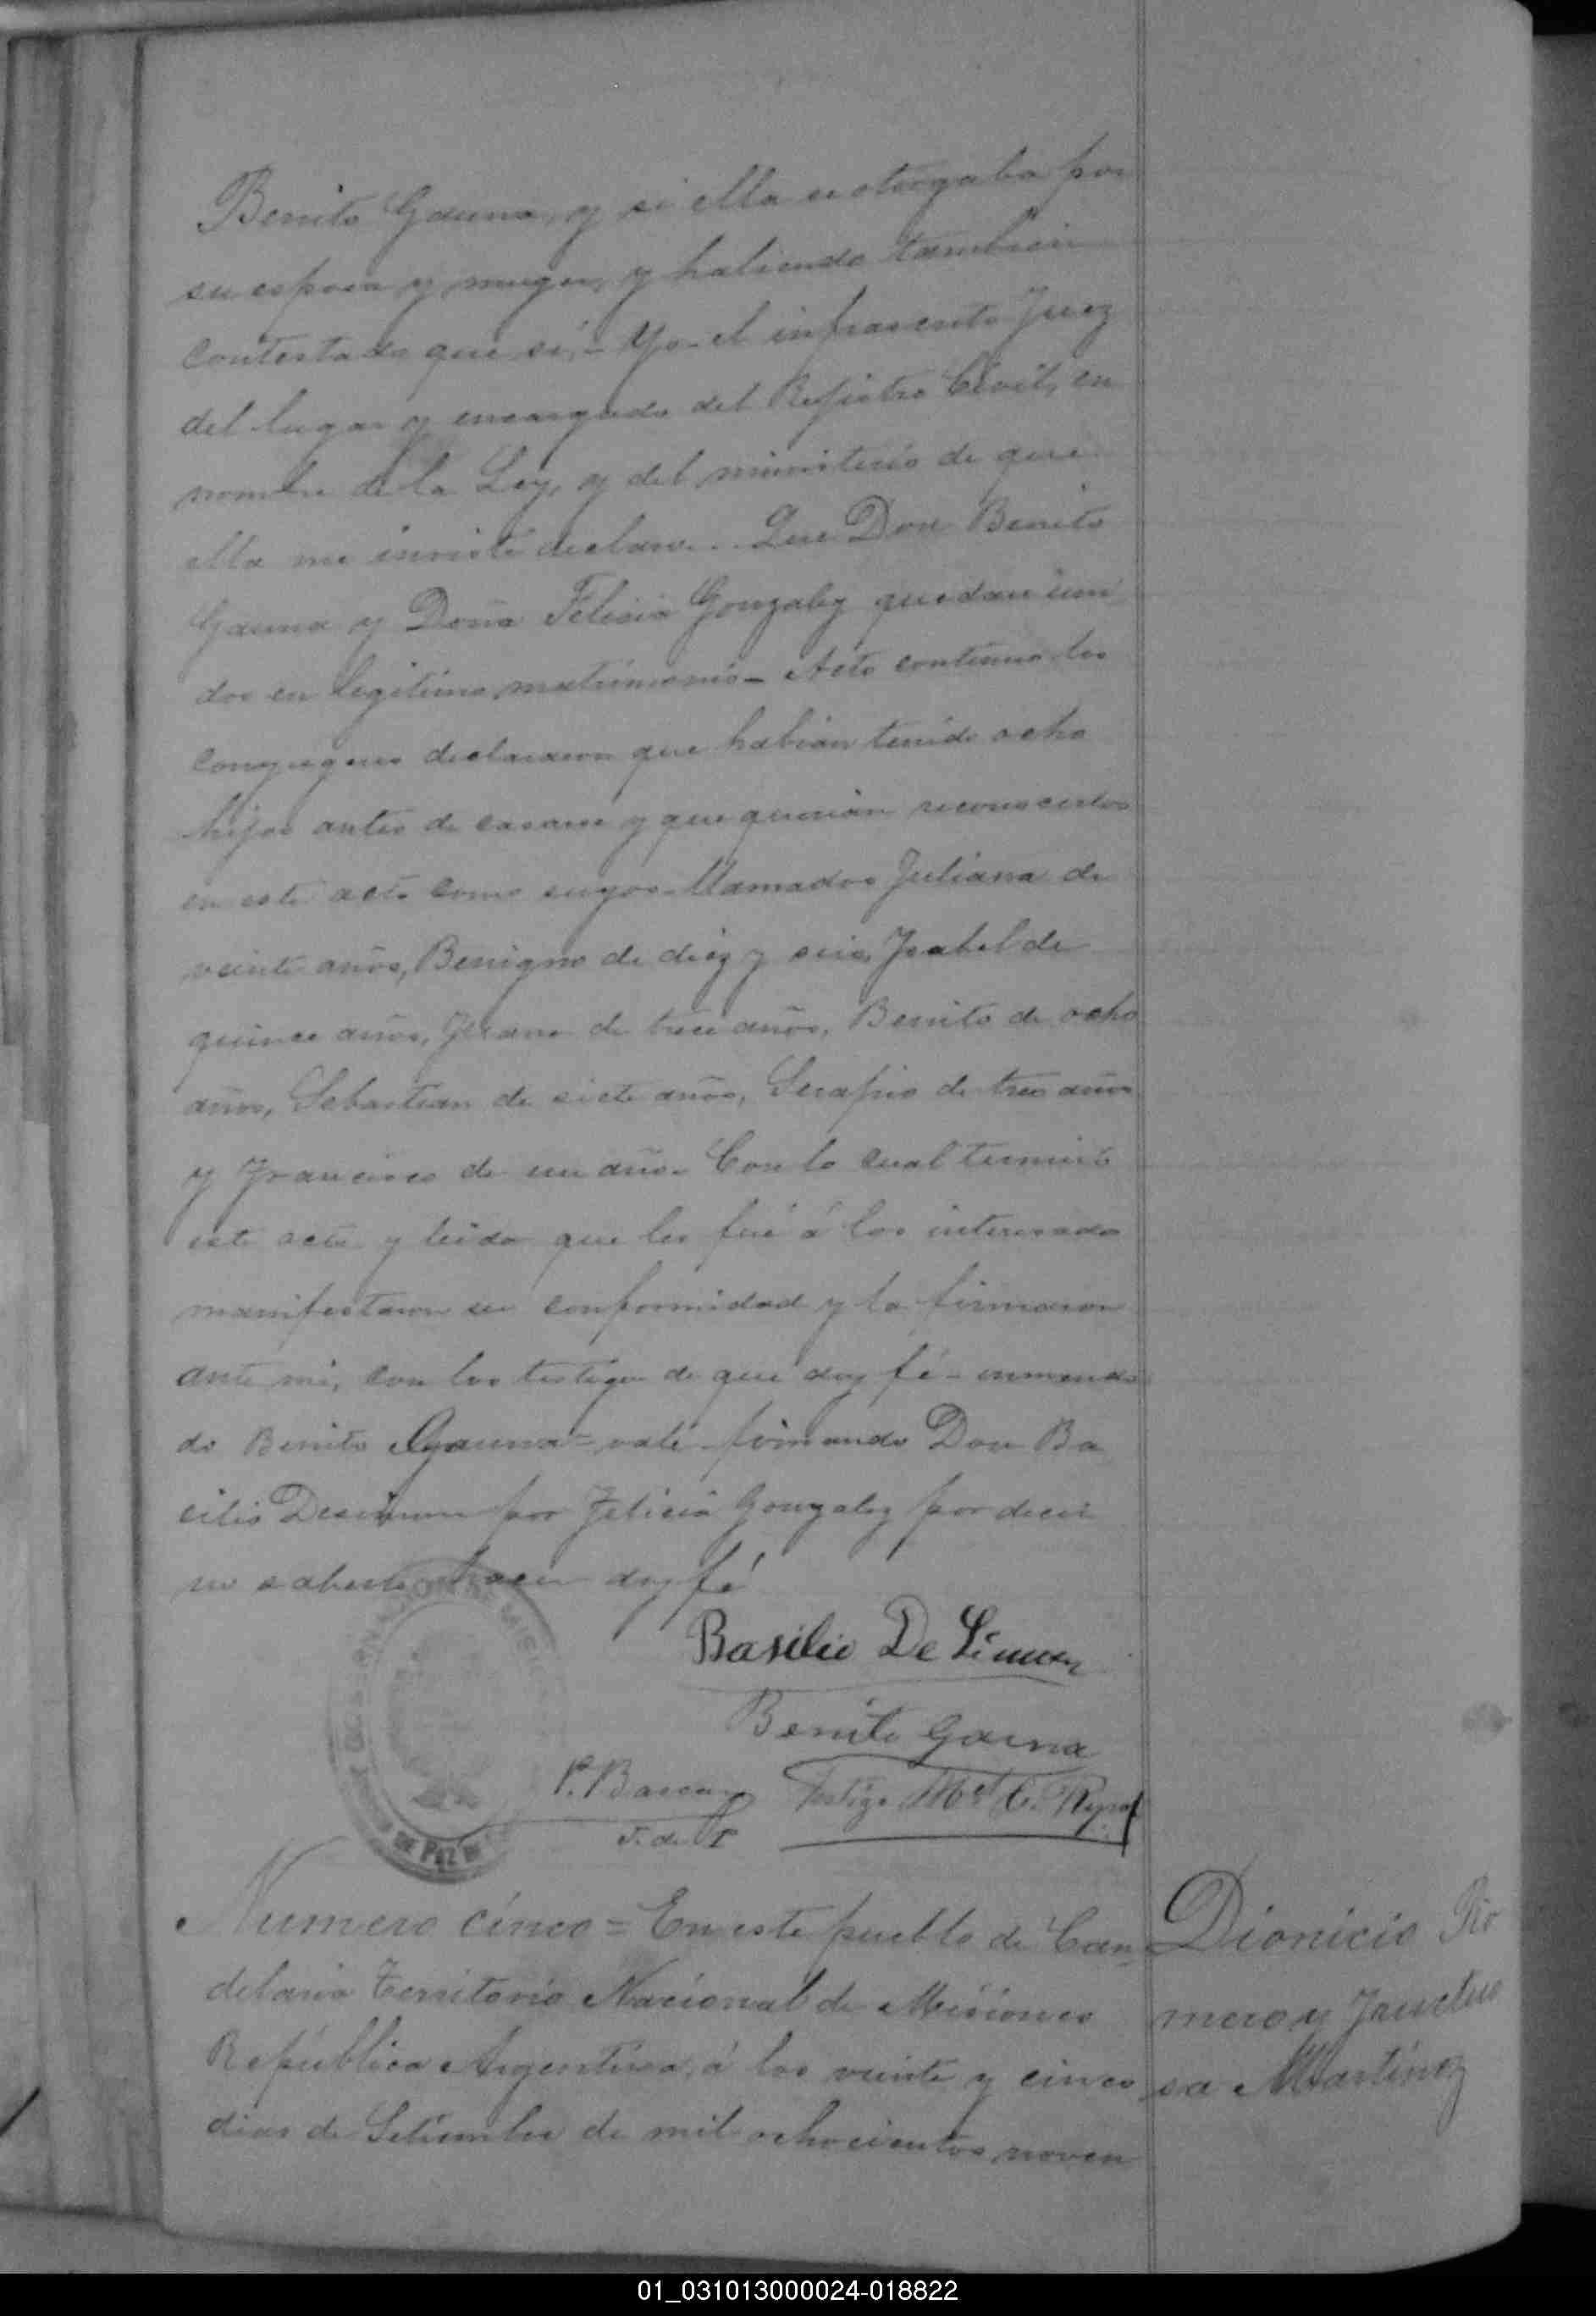 Benito Gauna, y si ella se otorgaba por
su esposa y muger, y habiendo tambien
contestado que si,- Yo el infrascrito Juez
del lugar y encargado del Registro Civil, en
nombre de la Ley, y del ministerio de que
ella me inviste declaro.. Que Don Benito
Gauna y Doña Felicia Gonzalez quedan uni
dos en legitimo matrimonio- Acto continuo los
conyugues declararon que habian tenido ocho
hijos antes de casarse y que querian reconocerlos
en este acto como suyos- llamados Juliana de
veinte años, Benigno de diez y seis, Isabel de
quince años, de trece años, Benito de ocho
años, Sebastian de siete años, Serapio de tres años
y Francisco de un año- Con lo cual termino
este acto y leida que les fué á los interesados
manifestaron su conformidad y la firmaron
ante mi, con los testigos de que doy fé- enmenda
do Benito Gauna= vale firmando Don Ba
cilio por Felicia Gonzalez por decir
no saberlo hacer doy fé
Basilio De
Benito Gauna
P. Testigo
J. de P
DE PAZ
Numero cinco= En este pueblo de Can- Dionicio Ro
delaria Territorio Nacional de Misiones mero y Fructuo
República Argentina, á los veinte y cinco sa Martinez
dias de Setiembre de mil ochocientos noven
01_031013000024-018822